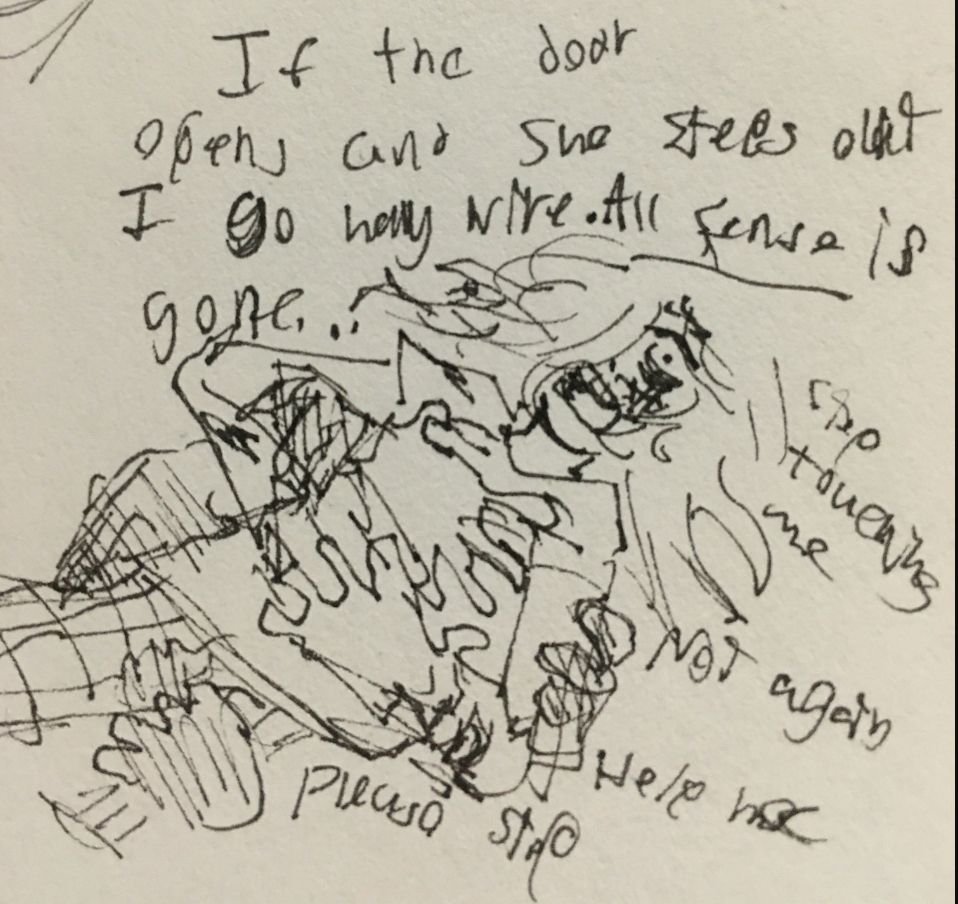 If the door
opens and she steps out
I go hay wire. All sense is
gone...
stop
touching
me
Not again
Help me
please stop